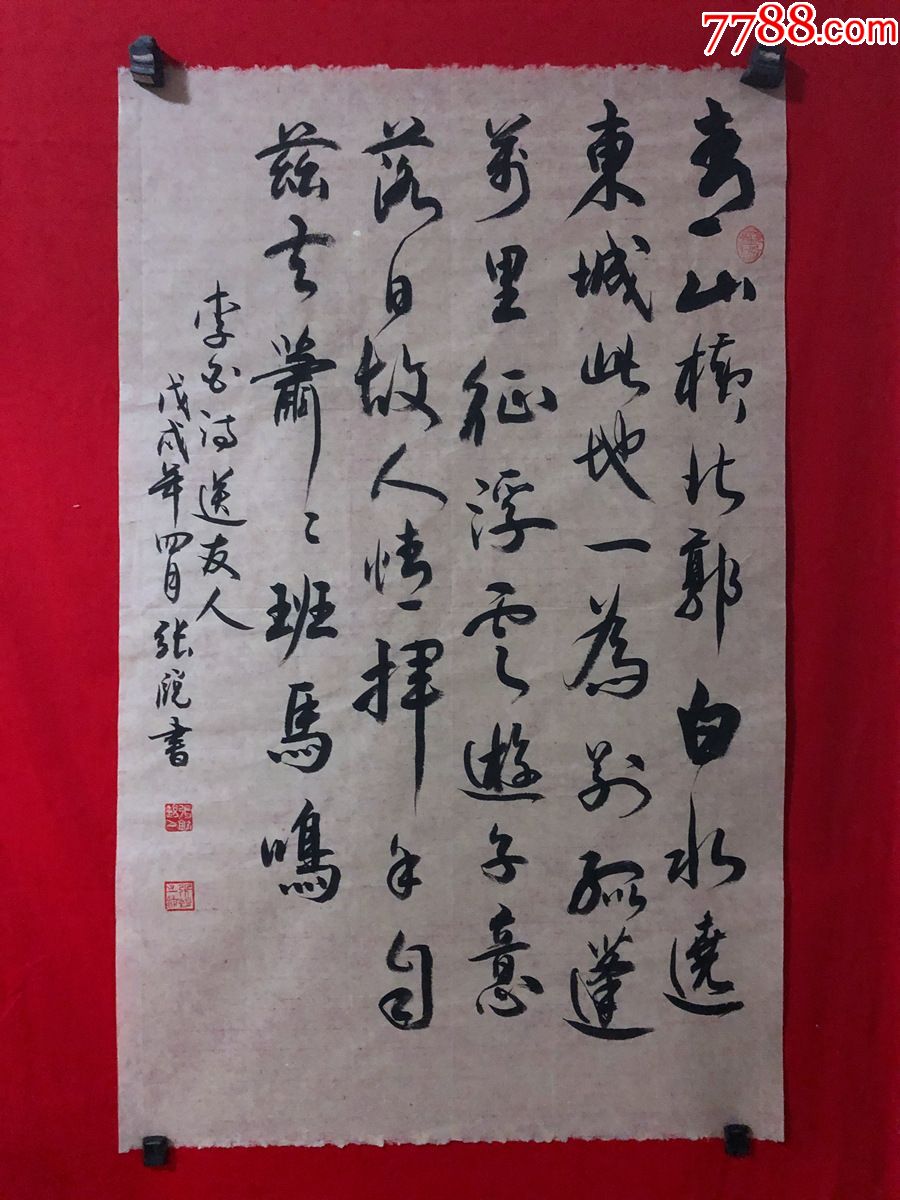 7788.com
青山横北郭白水遶
東城此地一為别孤蓬
萬里征浮雲遊子意
落日故人情揮手自
兹去蕭〻班馬鳴
李白詩送友人
戊戌年四月張書